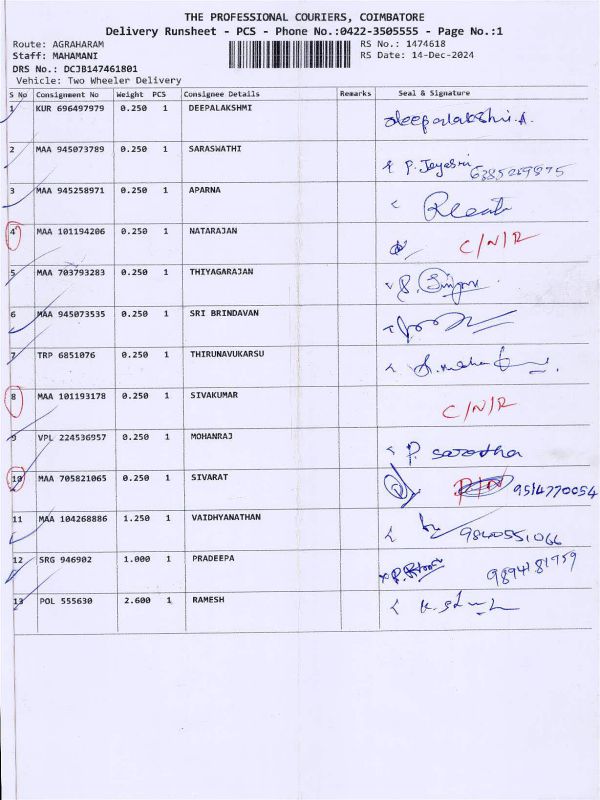 THE PROFESSIONAL COURIERS, COIMBATORE
Delivery Runsheet - PCS - Phone No.:0422-3505555 - Page No.:1
Route: AGRAHARAM RS No.: 1474618
Staff: MAHAMANI RS Date: 14-Dec-2024
DRS No.: DCJB147461801
Vehicle: Two Wheeler Delivery
S No Consignment No Weight PCS Consignee Details Remarks Seal & Signature
1 KUR 696497979 0.250 1 DEEPALAKSHMI deepalakshmi.A.
2 MAA 945073789 0.250 1 SARASWATHI P. Jeyasri
3 MAA 945258971 0.250 1 APARNA
4 MAA 101194206 0.250 1 NATARAJAN C/N/R
5 MAA 703793283 0.250 1 THIYAGARAJAN
6 MAA 945073535 0.250 1 SRI BRINDAVAN
7 TRP 6851076 0.250 1 THIRUNAVUKARSU
8 MAA 101193178 0.250 1 SIVAKUMAR C/N/R
9 VPL 224536957 0.250 1 MOHANRAJ P. sarodha
10 MAA 705821065 0.250 1 SIVARAT 9514770054
11 MAA 104268886 1.250 1 VAIDHYANATHAN 9840551066
12 SRG 946902 1.000 1 PRADEEPA 9894181959
13 POL 555630 2.600 1 RAMESH